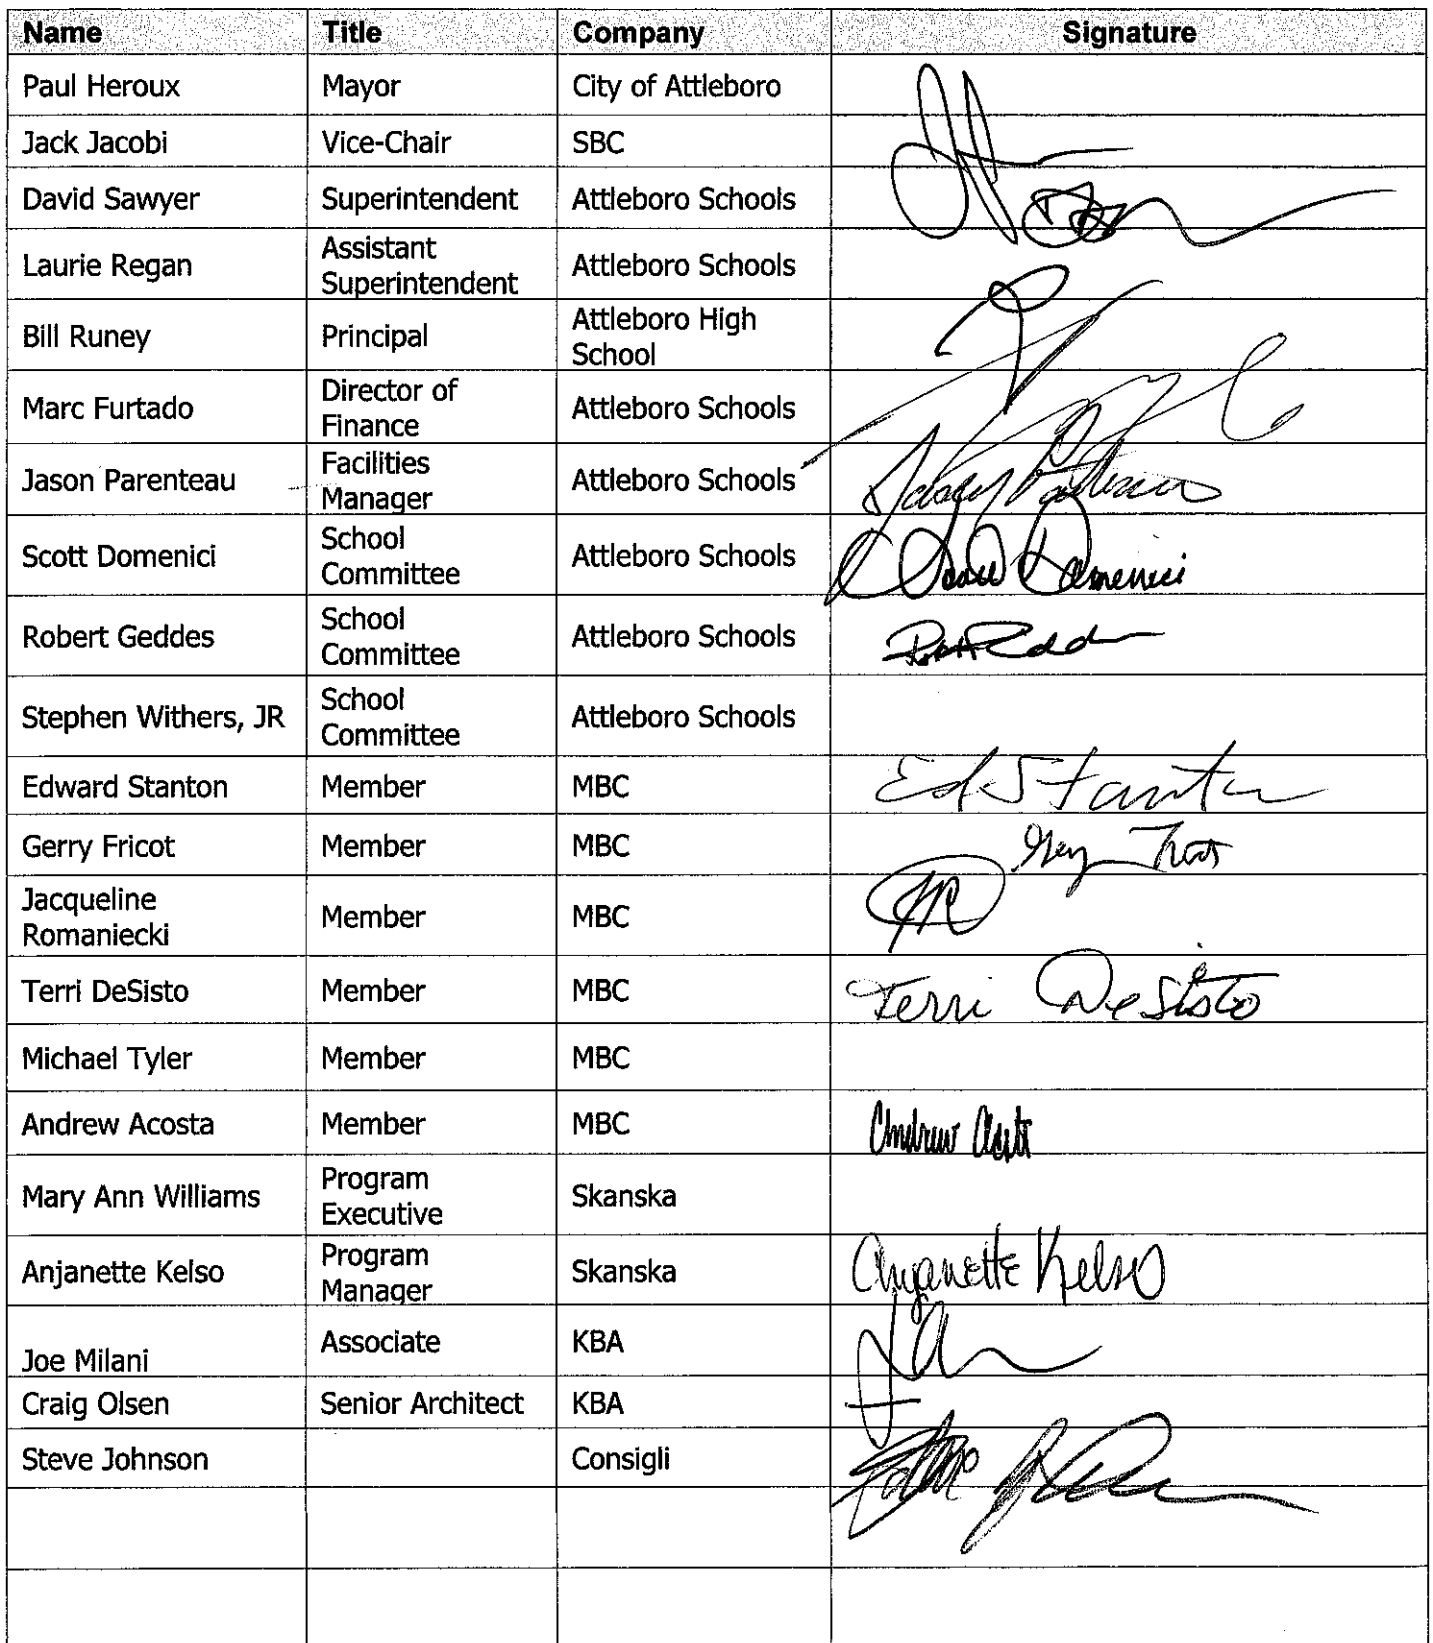 Name Title Company Signature
Paul Heroux Mayor City of Attleboro
Jack Jacobi Vice-Chair SBC
David Sawyer Superintendent Attleboro Schools
Laurie Regan Assistant Superintendent Attleboro Schools
Bill Runey Principal Attleboro High School
Marc Furtado Director of Finance Attleboro Schools
Jason Parenteau Facilities Manager Attleboro Schools
Scott Domenici School Committee Attleboro Schools Domenici
Robert Geddes School Committee Attleboro Schools
Stephen Withers, JR School Committee Attleboro Schools
Edward Stanton Member MBC Ed Stanton
Gerry Fricot Member MBC
Jacqueline Romaniecki Member MBC JR
Terri DeSisto Member MBC Terri DeSisto
Michael Tyler Member MBC
Andrew Acosta Member MBC Andrew Acosta
Mary Ann Williams Program Executive Skanska
Anjanette Kelso Program Manager Skanska Anjanette Kelso
Joe Milani Associate KBA
Craig Olsen Senior Architect KBA
Steve Johnson Consigli